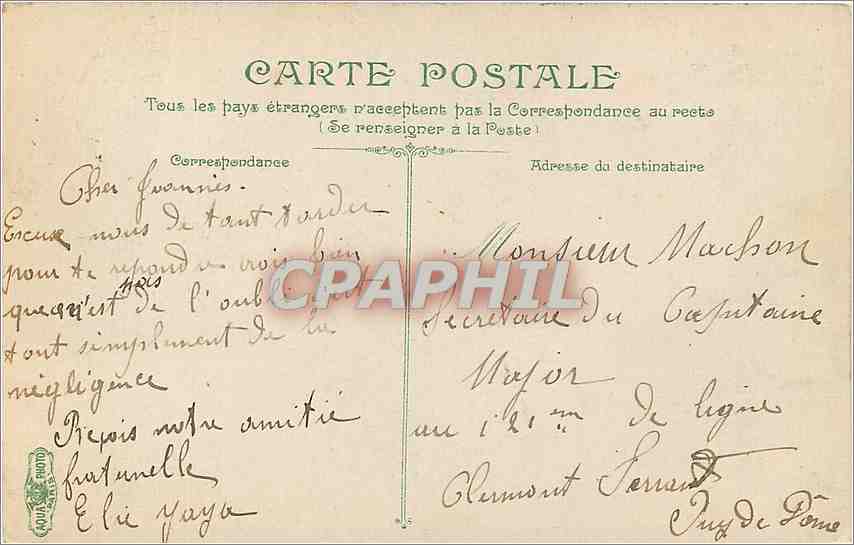 CARTE POSTALE
Tous les pays étrangers n'acceptent pas la Correspondance au recto
(Se renseigner à la Poste)
Correspondance
Adresse du destinataire
Cher Joannès.
Excuse nous de tant tarder
pour te repondre crois bien
que ce n'est pas de l'oubli c'est
tout simplement de la
négligence
Reçois notre amitié
fraternelle
Elie yaya
Monsieur Machon
Secrétaire du Capitaine
Major
au 121 em de ligne
Clermont Ferrand
Puy de Dôme
AQUA PHOTO
PARIS
CPAPHIL